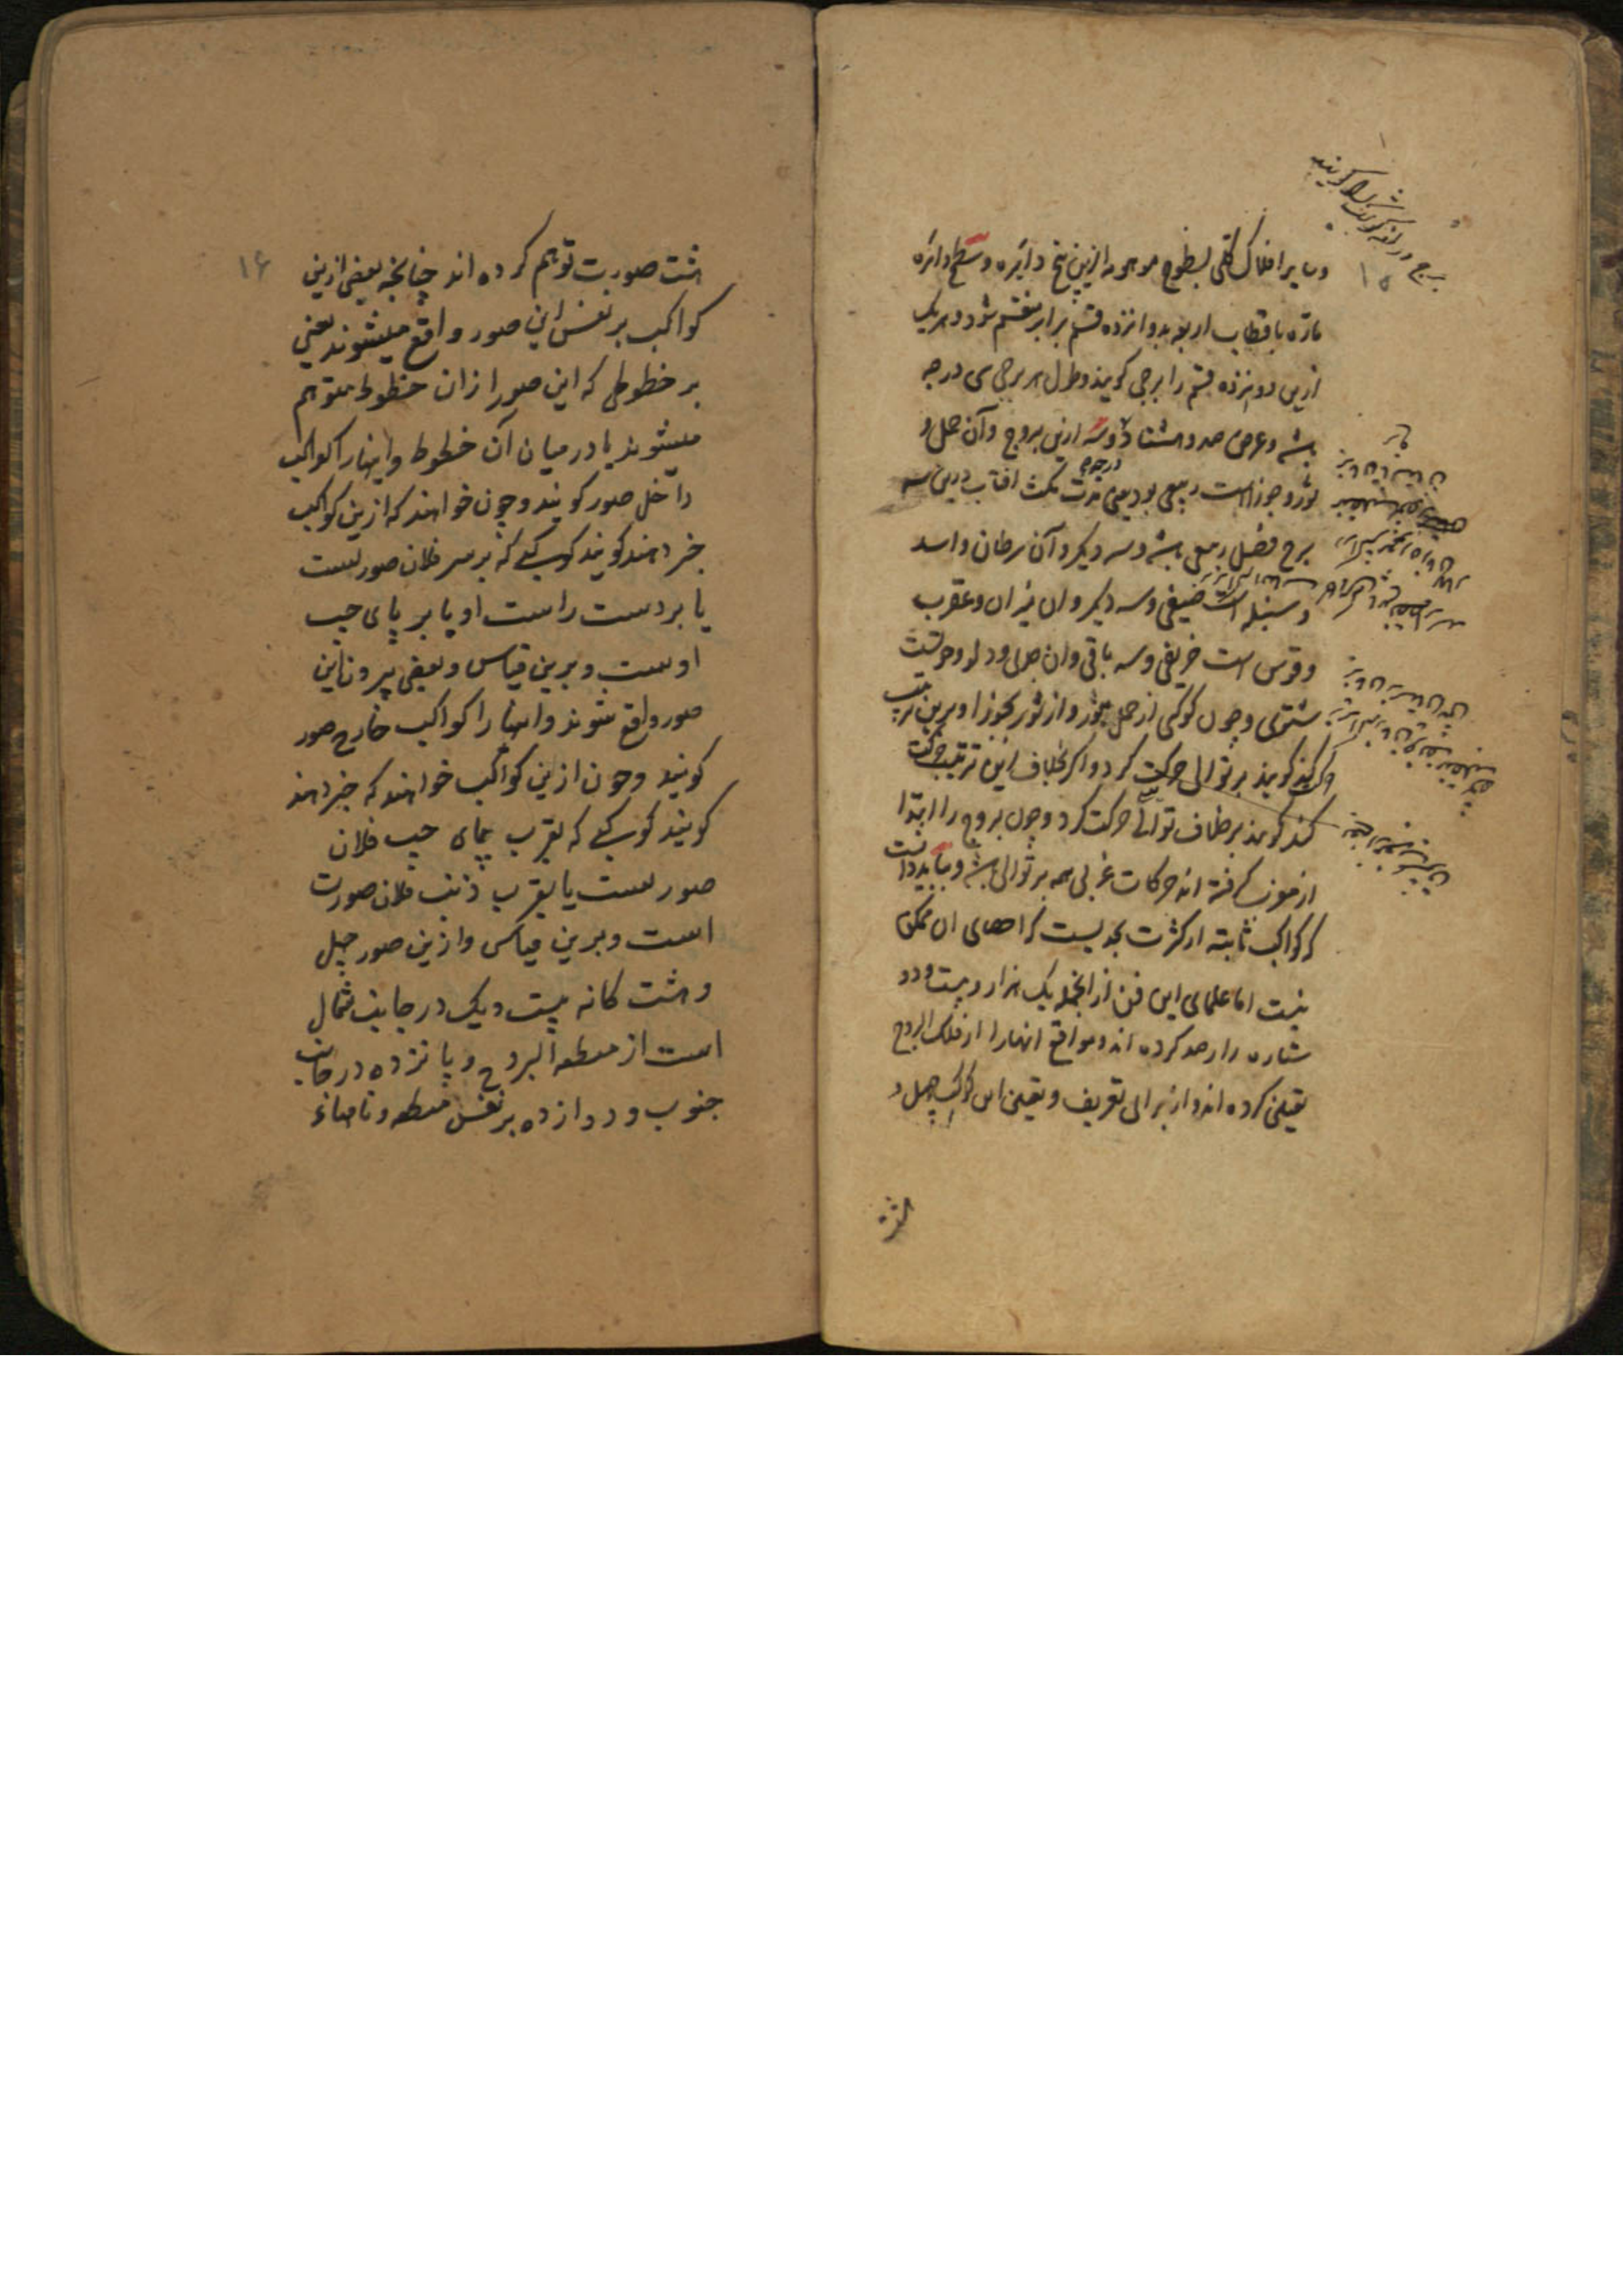 ۱۵
و سایر افلاک کلی بسطوح موهومه ازین پنج دایره و سطح دایره
ماره باقطاب اربعه بدوانزده قسم برابر منقسم شود و هریک
ازین دوانزده قسم را برجی کویند و طول هر برجی سی درجه
باشد و عرض صد و هشتاد درجه و سه ازین بروج و آن حمل و
ثور و جوزاست ربیعی بود یعنی مدت مکث افتاب درین سه
برج فصل ربیعی باشد و سه دیکر و آن سرطان و اسد
و سنبله است صیفی و سه دیکر و ان میزان و عقرب
و قوس است خریفی و سه باقی و ان جدی و دلو و حوتست
شتوی و چون کوکبی از حمل بثور و از ثور بجوزا و برین ترتیب
حرکت کند کویند بر توالی حرکت کرد و اکر بخلاف این ترتیب حرکت
کند کویند بر خلاف توالی حرکت کرد و چون بروج را ابتدا
از مغرب کرفته اند حرکات غربی همه بر توالی باشد و بباید دانست
که کواکب ثابته از کثرت بحدیست که احصای ان ممکن
نیست اما علمای این فن از انجمله یک هزار و بیست و دو
ستاره را رصد کرده اند و مواقع انها را از فلک البروج
تعیین کرده اند و از برای تعریف و تعیین این کواکب چهل و
هشت
۱۶
هشت صورت توهم کرده اند چنانچه بعضی ازین
کواکب بر نفس این صور واقع میشوند یعنی
بر خطوطی که این صور از ان خطوط متوهم
میشوند یا در میان آن خطوط و اینها را کواکب
داخل صور کویند و چون خواهند که ازین کواکب
خبر دهند کویند کوکبی که بر سر فلان صورتست
یا بر دست راست او یا بر پای چپ
اوست و برین قیاس و بعضی بیرون این
صور واقع شوند و انها را کواکب خارج صور
کویند و چون ازین کواکب خواهند که خبر دهند
کویند کوکبی که بقرب پای چپ فلان
صورتست یا بقرب ذنب فلان صورت
است و برین قیاس و ازین صور چهل
و هشت کانه بیست و یک در جانب شمال
است از منطقه البروج و پانزده در جانب
جنوب و دوازده بر نفس منطقه و نامهاء